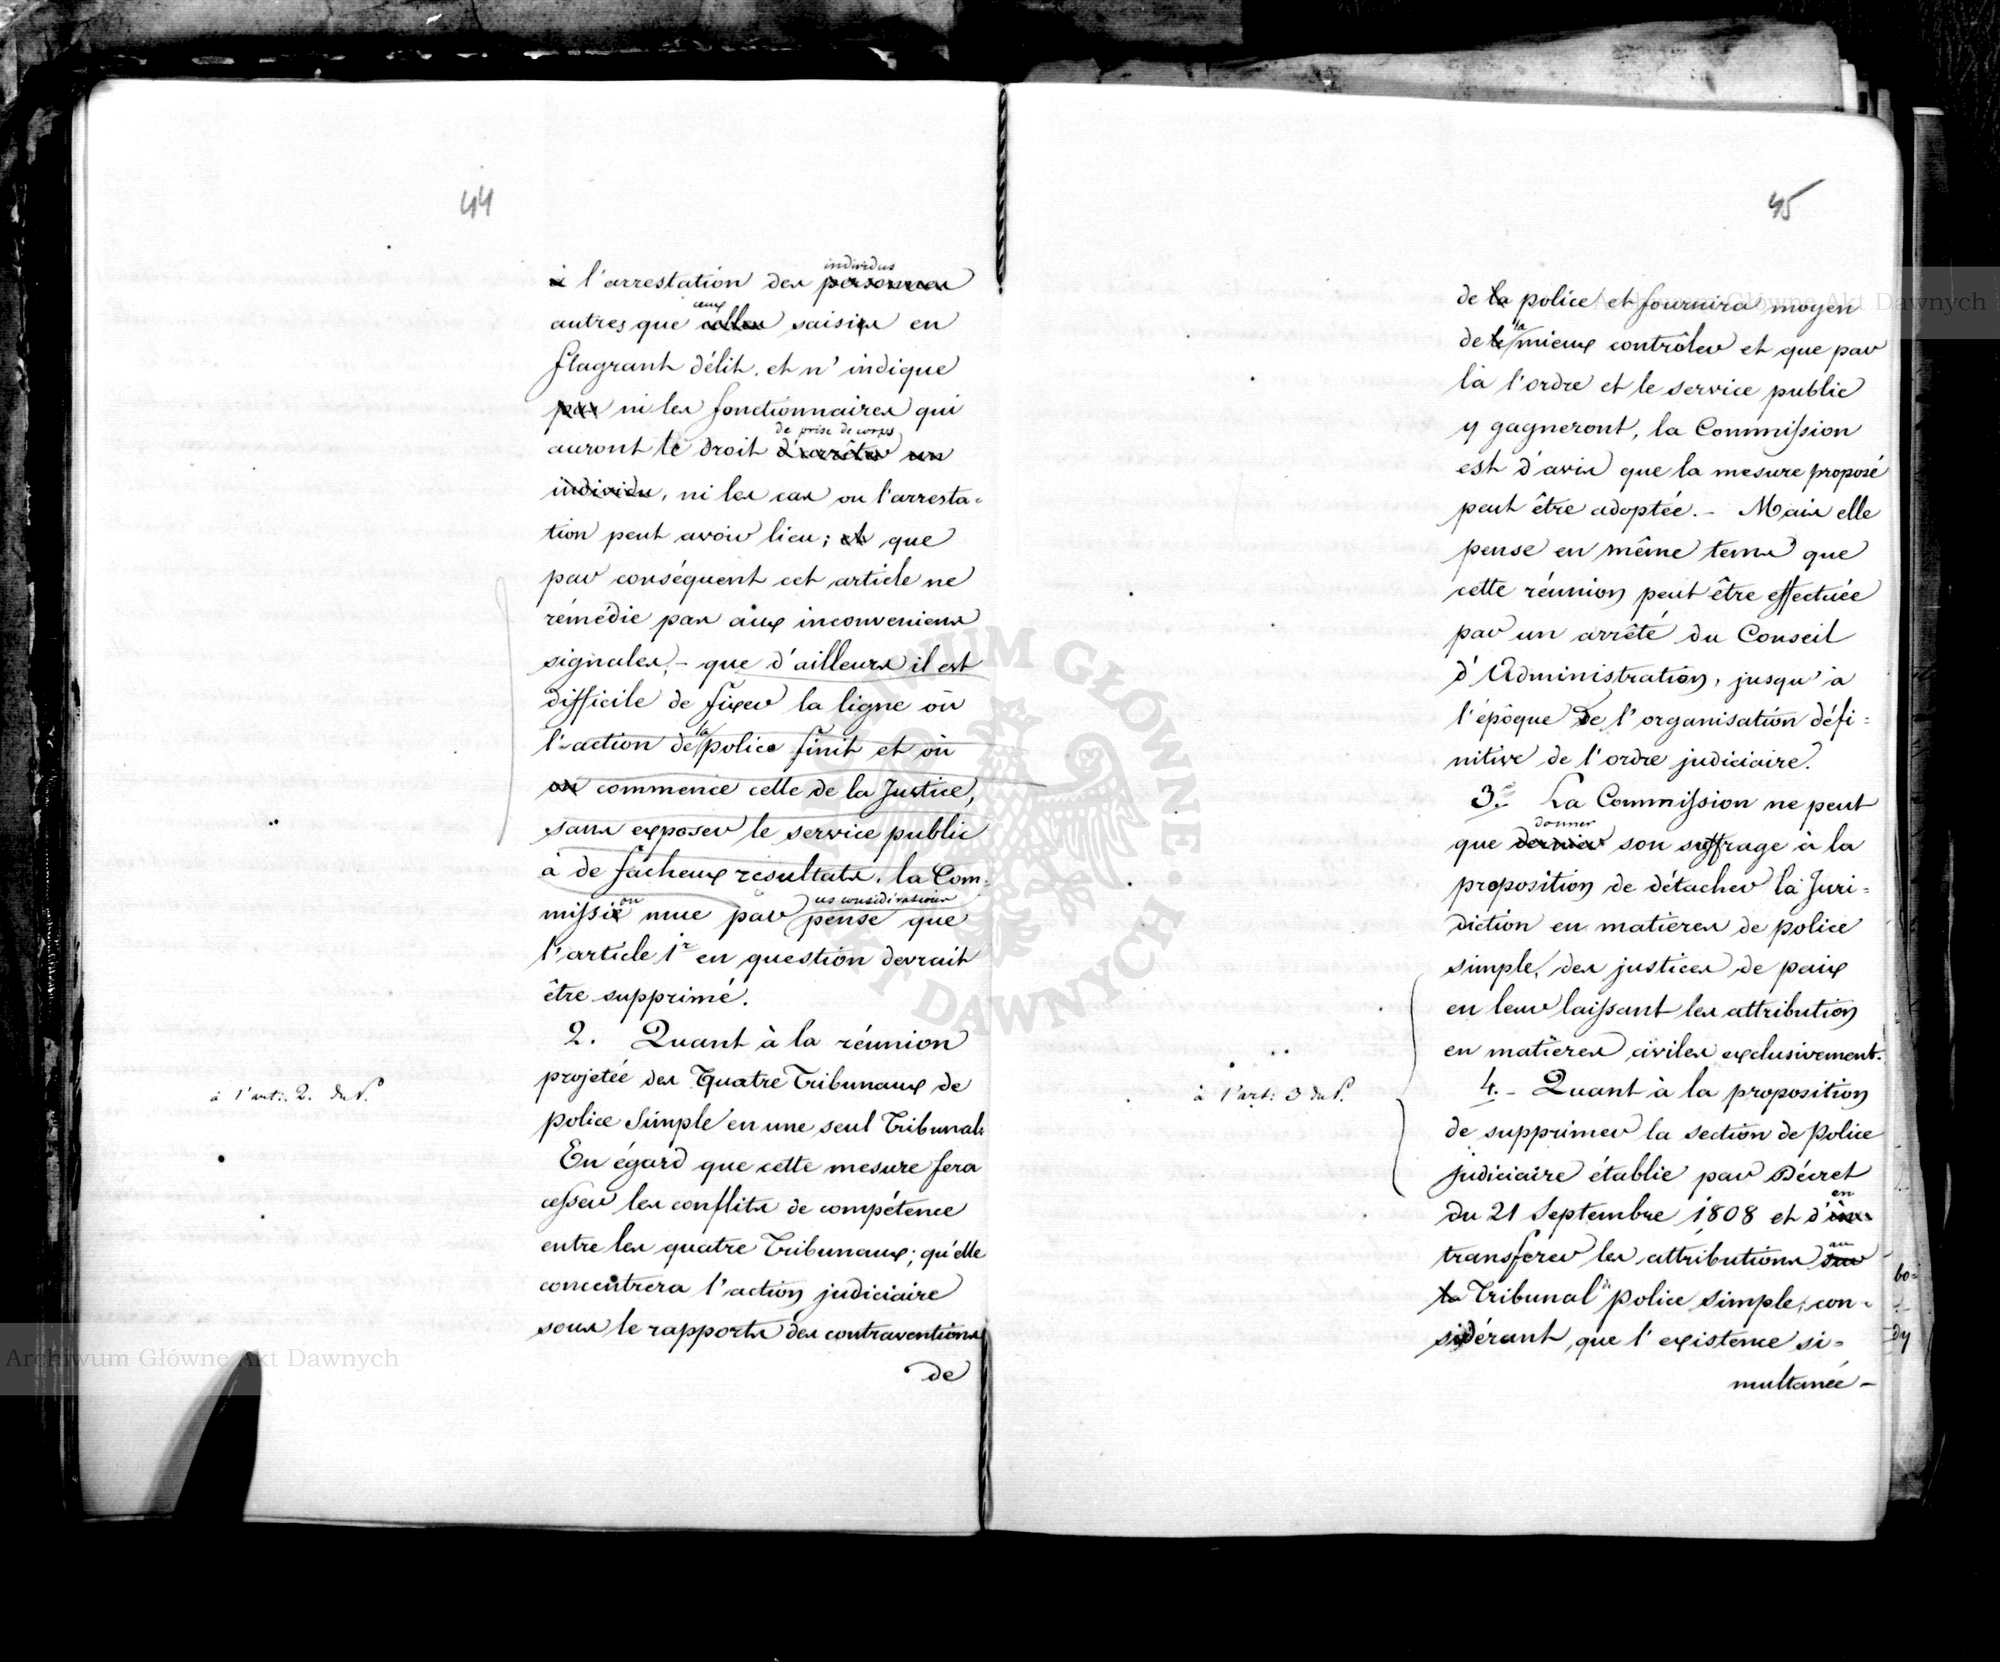 44
à l'arrestation des personnes individus
autres que celles ceux saisis en
flagrant délit, et n'indique
pas ni les fonctionnaires qui
auront le droit d'arrêter un de prise de corps
individu, ni les cas ou l'arresta-
tion peut avoir lieu; et que
par conséquent cet article ne
rémédie pas aux inconveniens
signalés, - que d'ailleurs il est
difficile de fixer la ligne où
l'action de la police finit et où
on commence celle de la Justice,
sans exposer le service public
à de facheux resultats. la Com-
mission mue par ces considérations pense que
l'article 1r en question devrait
être supprimé.
2. Quant à la réunion
projetée des Quatre Tribunaux de
à l'art: 2. du P.
police Simple en une seul Tribunal.
En égard que cette mesure fera
cesser les conflits de compétence
entre les quatre Tribunaux; qu'elle
concentrera l'action judiciaire
sous le rapports des contraventions
de
45
de la police et fournira moyen
de le la mieux contrôler et que par
là l'ordre et le service public
y gagneront, la Commission
est d'avis que la mesure proposé
peut être adoptée. - Mais elle
pense en même tems que
cette réunion peut être effectuée
par un arrêté du Conseil
d'Administration, jusqu'à
l'époque de l'organisation défi-
nitive de l'ordre judiciaire.
3. La Commission ne peut
que donner son suffrage à la
proposition de détacher la Juri-
diction en matières de police
simple, des justices de paix
en leur laissant les attribution
en matières civiles exclusivement.
à l'art: 3 du P.
4. - Quant à la proposition
de supprimer la section de Police
judiciaire établie par Décret
du 21 Septembre 1808 et d'en
transferer les attributions au
la Tribunal de police simple; con-
sidérant que l'existence si-
multanée -
bo-
dy
Archiwum Główne Akt Dawnych
Archiwum Główne Akt Dawnych
ARCHIWUM GŁÓWNE AKT DAWNYCH